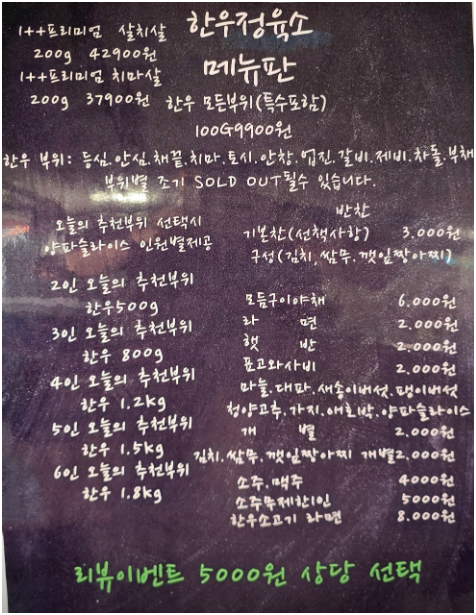 1++프리미엄 살치살
200g 42900원
1++프리미엄 치마살
200g 37900원
한우정육소
메뉴판
한우 모든부위(특수포함)
100G9900원
한우 부위: 등심.안심.채끝.치마.토시.안창.업진.갈비.제비.차돌.부채
부위별 조기 SOLD OUT될수 있습니다.
오늘의 추천부위 선택시
양파슬라이스 인원별제공
2인 오늘의 추천부위
한우500g
3인 오늘의 추천부위
한우 800g
4인 오늘의 추천부위
한우 1.2kg
5인 오늘의 추천부위
한우 1.5kg
6인 오늘의 추천부위
한우 1.8kg
반찬
기본찬(선책사항) 3.000원
구성(김치,쌈무.깻잎짱아찌)
모듬구이야채 6.000원
라면 2.000원
햇반 2.000원
표고와사비 2.000원
마늘.대파.새송이버섯.팽이버섯
청양고추.가지.애호박.양파슬라이스
개별 2.000원
김치.쌈무.깻잎짱아찌 개별2.000원
소주.맥주 4000원
소주무제한1인 5000원
한우소고기 라면 8.000원
리뷰이벤트 5000원 상당 선택